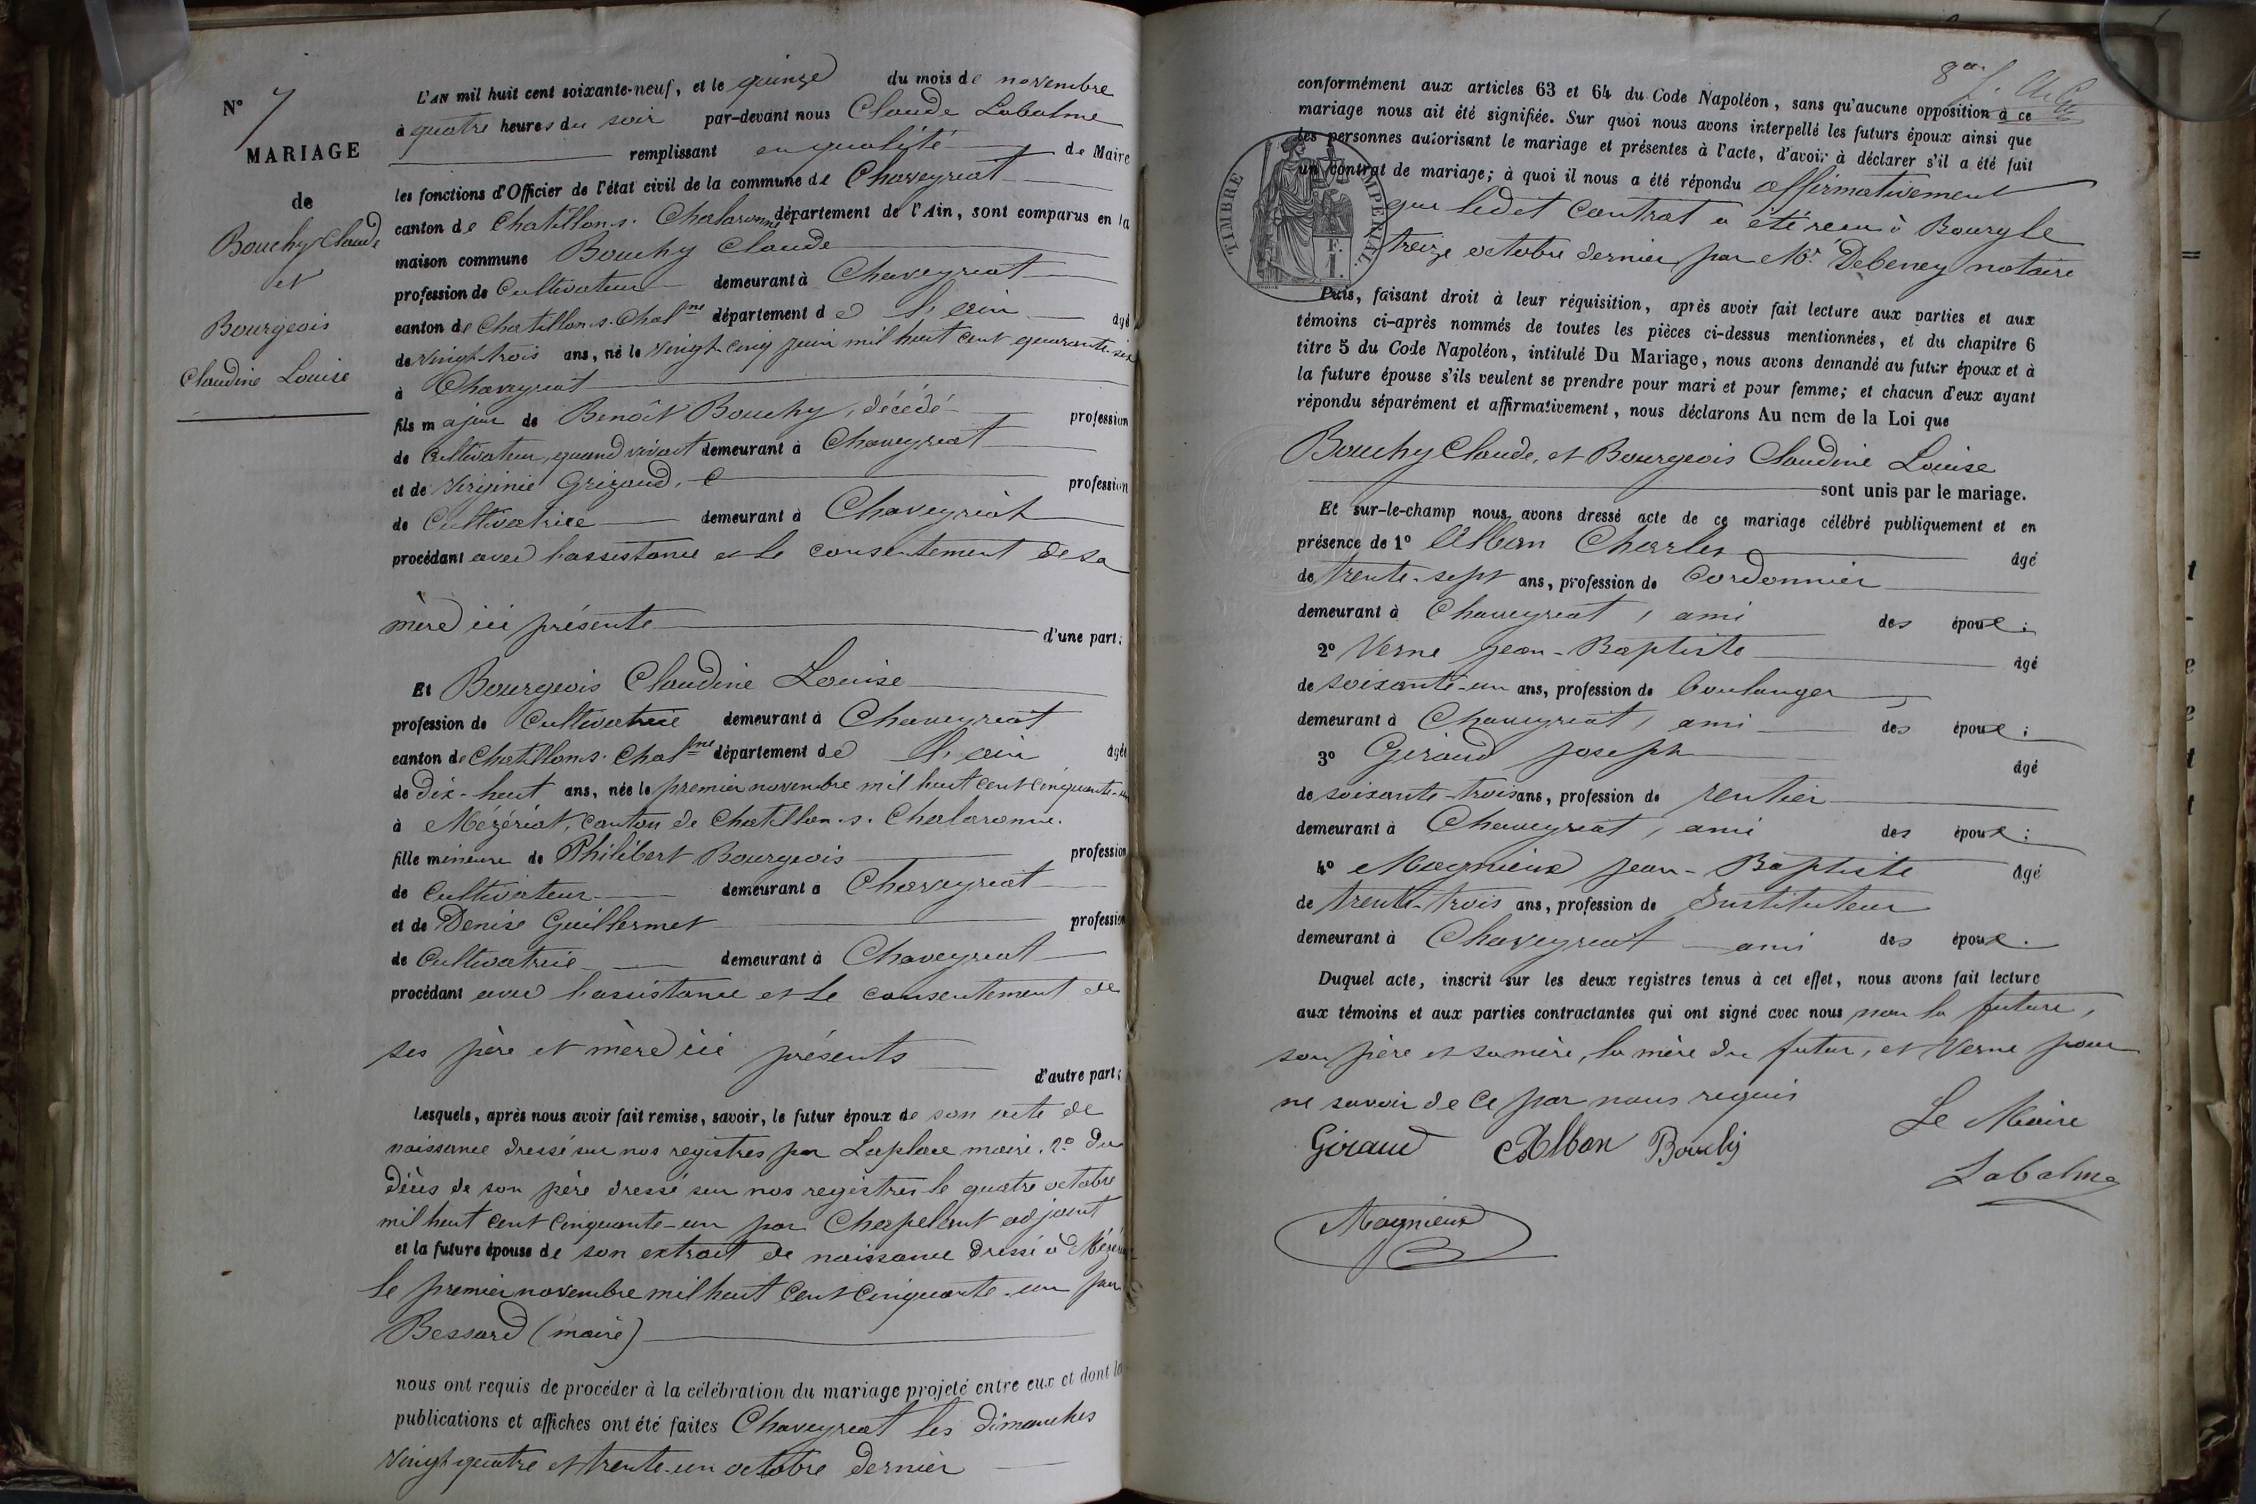 N° 7
MARIAGE
de
Bouchy Claude
et
Bourgeois
Claudine Louise
L'AN mil huit cent soixante-neuf, et le quinze du mois de novembre
à quatre heures du soir par-devant nous Claude Labalme
remplissant en qualité de Maire
les fonctions d'Officier de l'état civil de la commune de Chaveyriat
canton de Chatillon-s-Chalaronne département de l'Ain, sont comparus en la
maison commune Bouchy Claude
profession de Cultivateur demeurant à Chaveyriat
canton de Chatillon-s-Chalne département de l'ain âgé
de vingt-trois ans, né le vingt-cinq juin mil huit cent quarante-six
à Chaveyriat
fils majeur de Benoît Bouchy, décédé profession
de Cultivateur, quand vivait demeurant à Chaveyriat
et de Virginie Grizaud, profession
de Cultivatrice demeurant à Chaveyriat
procédant avec l'assistance et le consentement de sa
mère ici présente d'une part;
Et Bourgeois Claudine Louise
profession de Cultivatrice demeurant à Chaveyriat
canton de Chatillon-s-Chalne département de l'ain âgée
de dix-huit ans, née le premier novembre mil huit cent cinquante-un
à Mézériat, canton de Chatillon-s-Chalaronne.
fille mineure de Philibert Bourgeois profession
de Cultivateur demeurant à Chaveyriat
et de Denise Guillermet profession
de Cultivatrice demeurant à Chaveyriat
procédant avec l'assistance et le consentement de
ses père et mère ici présents d'autre part;
Lesquels, après nous avoir fait remise, savoir, le futur époux de son acte de
naissance dressé sur nos registres par Laplace maire, 2° du
décès de son père dressé sur nos registres le quatre octobre
mil huit cent cinquante-un par Chapelant adjoint
et la future épouse de son extrait de naissance dressé à Mézériat
le premier novembre mil huit cent cinquante-un par
Bessard (maire)
nous ont requis de procéder à la célébration du mariage projeté entre eux et dont les
publications et affiches ont été faites Chaveyriat les dimanches
vingt-quatre et trente-un octobre dernier
8
conformément aux articles 63 et 64 du Code Napoléon, sans qu'aucune opposition à ce
mariage nous ait été signifiée. Sur quoi nous avons interpellé les futurs époux ainsi que
les personnes autorisant le mariage et présentes à l'acte, d'avoir à déclarer s'il a été fait
un contrat de mariage; à quoi il nous a été répondu affirmativement
que ledit contrat a été reçu à Bourg le
treize octobre dernier par Mr Debeney notaire
TIMBRE IMPÉRIAL.
Puis, faisant droit à leur réquisition, après avoir fait lecture aux parties et aux
témoins ci-après nommés de toutes les pièces ci-dessus mentionnées, et du chapitre 6
titre 5 du Code Napoléon, intitulé Du Mariage, nous avons demandé au futur époux et à
la future épouse s'ils veulent se prendre pour mari et pour femme; et chacun d'eux ayant
répondu séparément et affirmativement, nous déclarons Au nom de la Loi que
Bouchy Claude, et Bourgeois Claudine Louise
sont unis par le mariage.
Et sur-le-champ nous avons dressé acte de ce mariage célébré publiquement et en
présence de 1° Alban Charles âgé
de trente-sept ans, profession de Cordonnier
demeurant à Chaveyriat, ami des époux;
2° Verne Jean-Baptiste âgé
de soixante-un ans, profession de boulanger
demeurant à Chaveyriat, ami des époux;
3° Giraud Joseph âgé
de soixante-trois ans, profession de rentier
demeurant à Chaveyriat, ami des époux;
4° Magnieux Jean-Baptiste âgé
de trente-trois ans, profession de Instituteur
demeurant à Chaveyriat ami des époux.
Duquel acte, inscrit sur les deux registres tenus à cet effet, nous avons fait lecture
aux témoins et aux parties contractantes qui ont signé avec nous non la future,
son père et sa mère, la mère du futur, et Verne pour
ne savoir de ce par nous requis
Giraud Alban Bouchy
Le Maire
Labalme
Magnieux